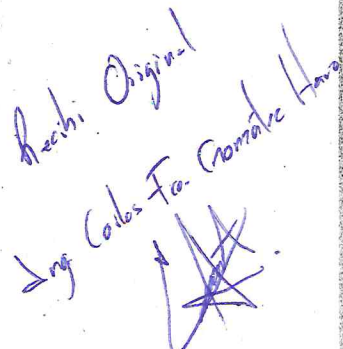 Recibi Original
Ing Carlos Fco. González Haro